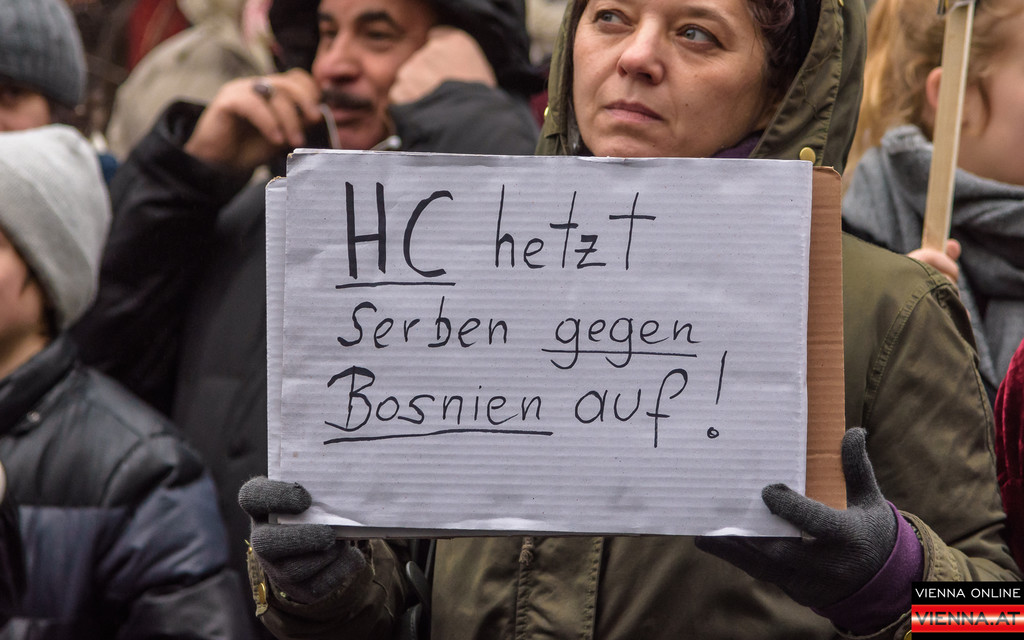 HC hetzt
Serben gegen
Bosnien auf!
VIENNA ONLINE
VIENNA.AT